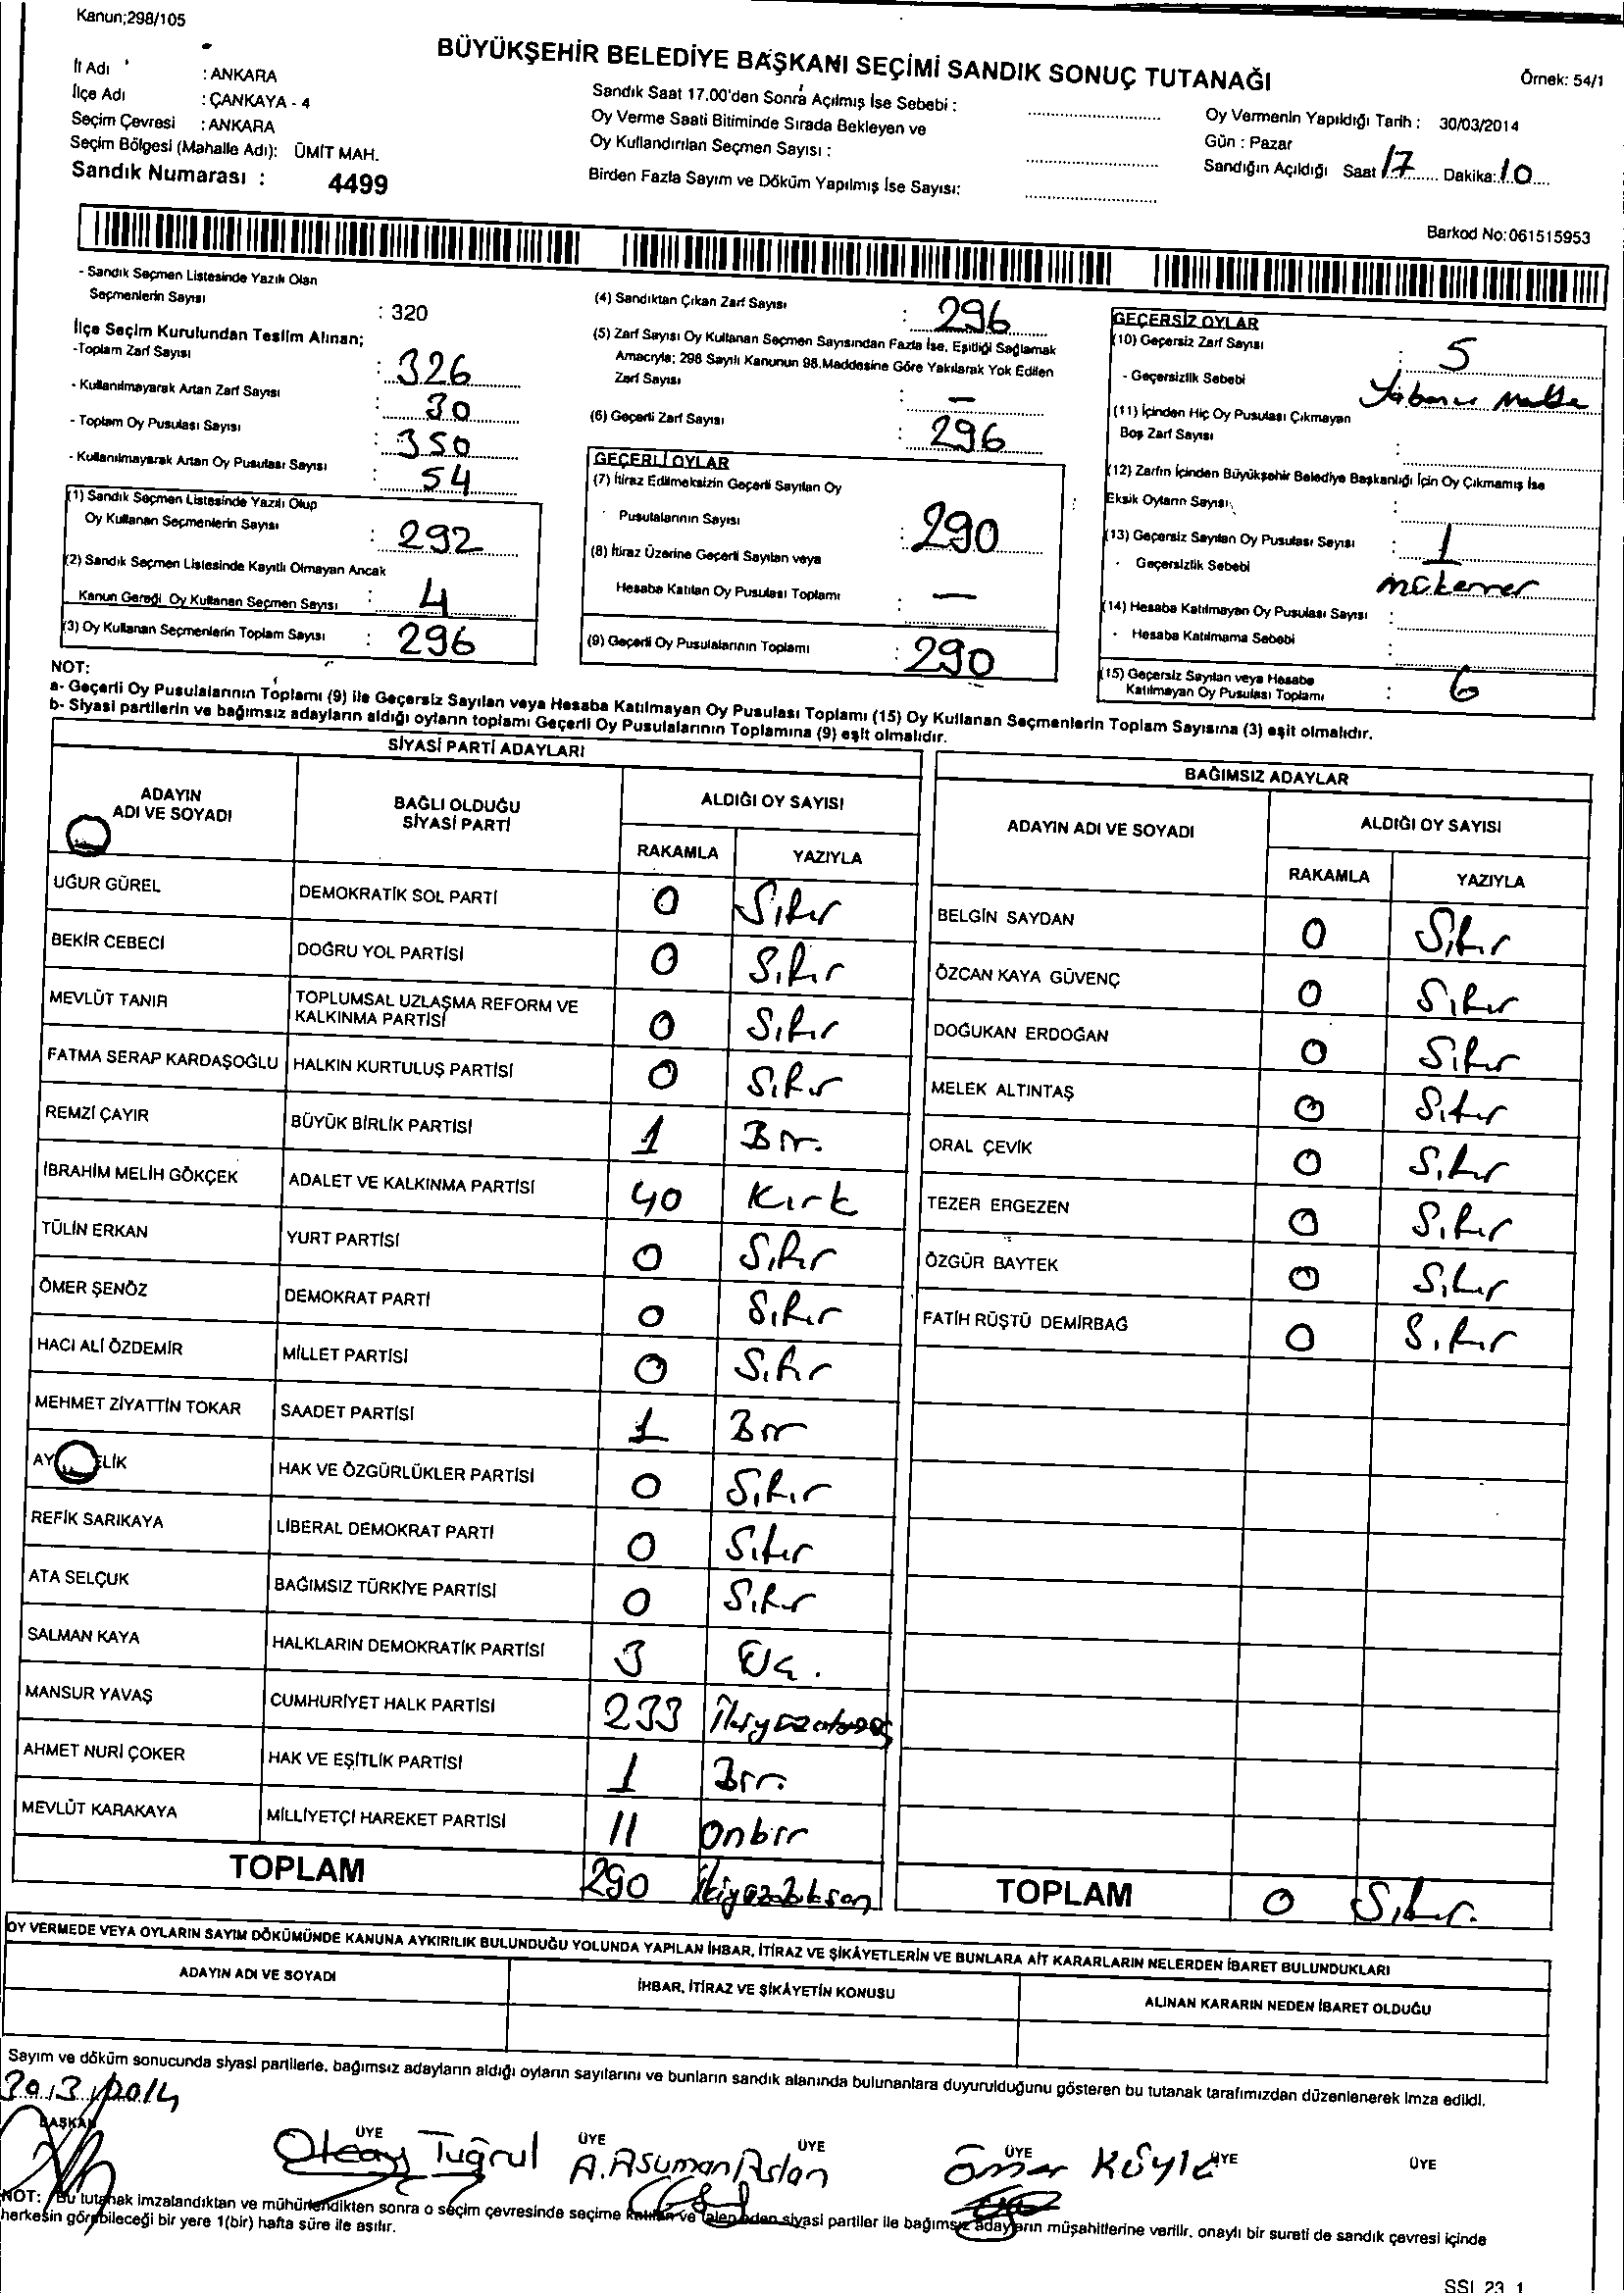 Kanun;298/105
BÜYÜKŞEHİR BELEDİYE BAŞKANI SEÇİMİ SANDIK SONUÇ TUTANAĞI
Örnek: 54/1
İl Adı : ANKARA
İlçe Adı : ÇANKAYA - 4
Seçim Çevresi : ANKARA
Seçim Bölgesi (Mahalle Adı): ÜMİT MAH.
Sandık Numarası : 4499
Sandık Saat 17.00'den Sonra Açılmış İse Sebebi :
Oy Verme Saati Bitiminde Sırada Bekleyen ve
Oy Kullandırılan Seçmen Sayısı :
Birden Fazla Sayım ve Döküm Yapılmış İse Sayısı:
Oy Vermenin Yapıldığı Tarih : 30/03/2014
Gün : Pazar
Sandığın Açıldığı Saat 17 Dakika: 10
Barkod No:061515953
- Sandık Seçmen Listesinde Yazılı Olan
Seçmenlerin Sayısı : 320
İlçe Seçim Kurulundan Teslim Alınan;
-Toplam Zarf Sayısı : 326
- Kullanılmayarak Artan Zarf Sayısı : 30
- Toplam Oy Pusulası Sayısı : 350
- Kullanılmayarak Artan Oy Pusulası Sayısı : 54
(1) Sandık Seçmen Listesinde Yazılı Olup
Oy Kullanan Seçmenlerin Sayısı : 292
(2) Sandık Seçmen Listesinde Kayıtlı Olmayan Ancak
Kanun Gereği Oy Kullanan Seçmen Sayısı : 4
(3) Oy Kullanan Seçmenlerin Toplam Sayısı : 296
(4) Sandıktan Çıkan Zarf Sayısı : 296
(5) Zarf Sayısı Oy Kullanan Seçmen Sayısından Fazla İse, Eşitliği Sağlamak
Amacıyla; 298 Sayılı Kanunun 98.Maddesine Göre Yakılarak Yok Edilen
Zarf Sayısı : —
(6) Geçerli Zarf Sayısı : 296
GEÇERLİ OYLAR
(7) İtiraz Edilmeksizin Geçerli Sayılan Oy
Pusulalarının Sayısı : 290
(8) İtiraz Üzerine Geçerli Sayılan veya
Hesaba Katılan Oy Pusulası Toplamı : —
(9) Geçerli Oy Pusulalarının Toplamı : 290
GEÇERSİZ OYLAR
(10) Geçersiz Zarf Sayısı : 5
- Geçersizlik Sebebi Yabancı Madde
(11) İçinden Hiç Oy Pusulası Çıkmayan
Boş Zarf Sayısı :
(12) Zarfın İçinden Büyükşehir Belediye Başkanlığı İçin Oy Çıkmamış İse
Eksik Oyların Sayısı :
(13) Geçersiz Sayılan Oy Pusulası Sayısı : 1
- Geçersizlik Sebebi mükerrer
(14) Hesaba Katılmayan Oy Pusulası Sayısı :
- Hesaba Katılmama Sebebi :
(15) Geçersiz Sayılan veya Hesaba
Katılmayan Oy Pusulası Toplamı : 6
NOT:
a- Geçerli Oy Pusulalarının Toplamı (9) ile Geçersiz Sayılan veya Hesaba Katılmayan Oy Pusulası Toplamı (15) Oy Kullanan Seçmenlerin Toplam Sayısına (3) eşit olmalıdır.
b- Siyasi partilerin ve bağımsız adayların aldığı oyların toplamı Geçerli Oy Pusulalarının Toplamına (9) eşit olmalıdır.
SİYASİ PARTİ ADAYLARI
ADAYIN ADI VE SOYADI
BAĞLI OLDUĞU SİYASİ PARTİ
ALDIĞI OY SAYISI
RAKAMLA YAZIYLA
UĞUR GÜREL DEMOKRATİK SOL PARTİ 0 Sıfır
BEKİR CEBECİ DOĞRU YOL PARTİSİ 0 Sıfır
MEVLÜT TANIR TOPLUMSAL UZLAŞMA REFORM VE KALKINMA PARTİSİ 0 Sıfır
FATMA SERAP KARDAŞOĞLU HALKIN KURTULUŞ PARTİSİ 0 Sıfır
REMZİ ÇAYIR BÜYÜK BİRLİK PARTİSİ 1 Bir.
İBRAHİM MELİH GÖKÇEK ADALET VE KALKINMA PARTİSİ 40 Kırk
TÜLİN ERKAN YURT PARTİSİ 0 Sıfır
ÖMER ŞENÖZ DEMOKRAT PARTİ 0 Sıfır
HACI ALİ ÖZDEMİR MİLLET PARTİSİ 0 Sıfır
MEHMET ZİYATTİN TOKAR SAADET PARTİSİ 1 Bir
AY ELİK HAK VE ÖZGÜRLÜKLER PARTİSİ 0 Sıfır
REFİK SARIKAYA LİBERAL DEMOKRAT PARTİ 0 Sıfır
ATA SELÇUK BAĞIMSIZ TÜRKİYE PARTİSİ 0 Sıfır
SALMAN KAYA HALKLARIN DEMOKRATİK PARTİSİ 3 Üç.
MANSUR YAVAŞ CUMHURİYET HALK PARTİSİ 233
AHMET NURİ ÇOKER HAK VE EŞİTLİK PARTİSİ 1 Bir.
MEVLÜT KARAKAYA MİLLİYETÇİ HAREKET PARTİSİ 11 Onbir
TOPLAM 290 İkiyüzdoksan
BAĞIMSIZ ADAYLAR
ADAYIN ADI VE SOYADI
ALDIĞI OY SAYISI
RAKAMLA YAZIYLA
BELGİN SAYDAN 0 Sıfır
ÖZCAN KAYA GÜVENÇ 0 Sıfır
DOĞUKAN ERDOĞAN 0 Sıfır
MELEK ALTINTAŞ 0 Sıfır
ORAL ÇEVİK 0 Sıfır
TEZER ERGEZEN 0 Sıfır
ÖZGÜR BAYTEK 0 Sıfır
FATİH RÜŞTÜ DEMİRBAĞ 0 Sıfır
TOPLAM 0 Sıfır.
OY VERMEDE VEYA OYLARIN SAYIM DÖKÜMÜNDE KANUNA AYKIRILIK BULUNDUĞU YOLUNDA YAPILAN İHBAR, İTİRAZ VE ŞİKÂYETLERİN VE BUNLARA AİT KARARLARIN NELERDEN İBARET BULUNDUKLARI
ADAYIN ADI VE SOYADI
İHBAR, İTİRAZ VE ŞİKÂYETİN KONUSU
ALINAN KARARIN NEDEN İBARET OLDUĞU
Sayım ve döküm sonucunda siyasi partilerle, bağımsız adayların aldığı oyların sayılarını ve bunların sandık alanında bulunanlara duyurulduğunu gösteren bu tutanak tarafımızdan düzenlenerek imza edildi.
30/3/2014
BAŞKAN ÜYE ÜYE ÜYE ÜYE ÜYE ÜYE
Olcay Tuğrul A. Asuman Aslan Ömer
NOT: Bu tutanak imzalandıktan ve mühürlendikten sonra o seçim çevresinde seçime katılan ve talep eden siyasi partiler ile bağımsız adayların müşahitlerine verilir, onaylı bir sureti de sandık çevresi içinde
herkesin görebileceği bir yere 1(bir) hafta süre ile asılır.
SSI 23 1